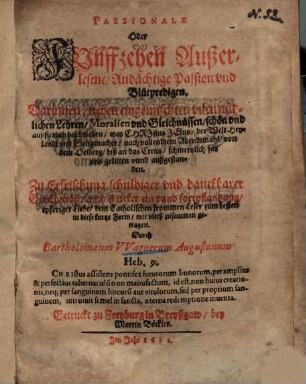 N. 52
PASSIONALE
Oder
Fünffzehen Außer-
lesene, Andächtige Passion vnd
Blütpredigen.
Darinnen, neben eingemischten vilen nutz-
lichen Lehren, Moralien vnd Gleichnussen, schön vnd
beschriben, was CHRIstus JEsus, der Welt Hey-
land vnd Seligmacher, nach vollendtem Abendmahl, von
dem Oelberg, biß an das Creutz, schmertzlich für
vns gelitten vnnd außgestan-
den.
Zu Erfrischung schuldiger vnd danckbarer
vnd fortpflantzung
Liebe, dem Catholischen frommen Leser zum besten
in diese kurtze Form, mit fleiß zusammen ge-
tragen.
Durch
Bartholomæum VVagnerum Augustanum
Heb. 9.
CHRISTUS assistens pontifex futurorum bonorum, per amplius
& perfectius tabernaculum non manufactum, id est, non huius creatio-
nis, neq; per sanguinem hircorū aut vitulorum, sed per proprium san-
guinem, introiuit semel in sancta, æterna redemptione inuenta.
Getruckt zu Freyburg in Breyßgaw, bey
Martin Böckler.
Im Jahr 1612.